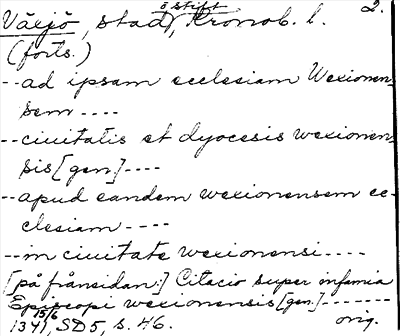 Växjö, stad o stift, Kronob. l. 2.
(forts.)
--ad ipsam ecclesiam Wexionen-
sem ----
--ciuitatis et dyocesis wexionen-
sis [gen.] ----
--apud eandem wexionensem ec-
clesiam ----
--in ciuitate wexionensi ----
[på frånsidan:] Citacio super infamia
Episcopi wexionensis [gen.] -------
1341 15/6, SD5, s. 46. orig.